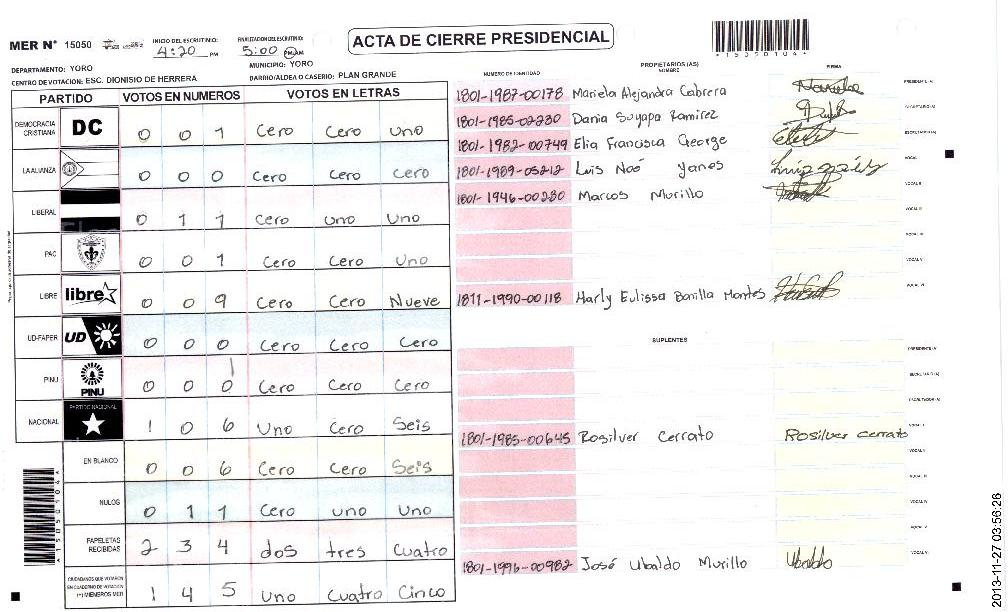 MER N° 15050
INICIO DEL ESCRUTINIO:
4:20 PM
FINALIZACION DEL ESCRUTINIO:
5:00 PM/AM
ACTA DE CIERRE PRESIDENCIAL
*15350104*
DEPARTAMENTO: YORO
MUNICIPIO: YORO
CENTRO DE VOTACION: ESC. DIONISIO DE HERRERA
BARRIO/ALDEA O CASERIO: PLAN GRANDE
PARTIDO VOTOS EN NUMEROS VOTOS EN LETRAS
DEMOCRACIA CRISTIANA DC 0 0 1 Cero Cero Uno
LA ALIANZA 0 0 0 Cero Cero Cero
LIBERAL 0 1 1 Cero uno Uno
PAC 0 0 1 Cero Cero Uno
LIBRE libre 0 0 9 Cero Cero Nueve
UD-FAPER UD 0 0 0 Cero Cero Cero
PINU PINU 0 0 0 Cero Cero Cero
NACIONAL PARTIDO NACIONAL 1 0 6 Uno Cero Seis
EN BLANCO 0 0 6 Cero Cero Seis
NULOS 0 1 1 Cero uno Uno
PAPELETAS RECIBIDAS 2 3 4 dos tres Cuatro
CIUDADANOS QUE VOTARON EN CUADERNO DE VOTACION (+) MIEMBROS MER 1 4 5 Uno Cuatro Cinco
PROPIETARIOS (AS)
NUMERO DE IDENTIDAD NOMBRE FIRMA
1801-1987-00178 Mariela Alejandra Cabrera PRESIDENTE(A)
1801-1985-02230 Dania Suyapa Ramirez
1801-1982-00749 Elia Francisca George
1801-1989-05212 Luis Noé Yanes VOCAL
1801-1946-00230 Marcos Murillo
1811-1990-00118 Harly Eulissa Bonilla Montes
SUPLENTES
1801-1985-00645 Rosilver Cerrato Rosilver cerrato
1801-1996-00982 José Ubaldo Murillo Ubaldo
2013-11-27 03:56:26